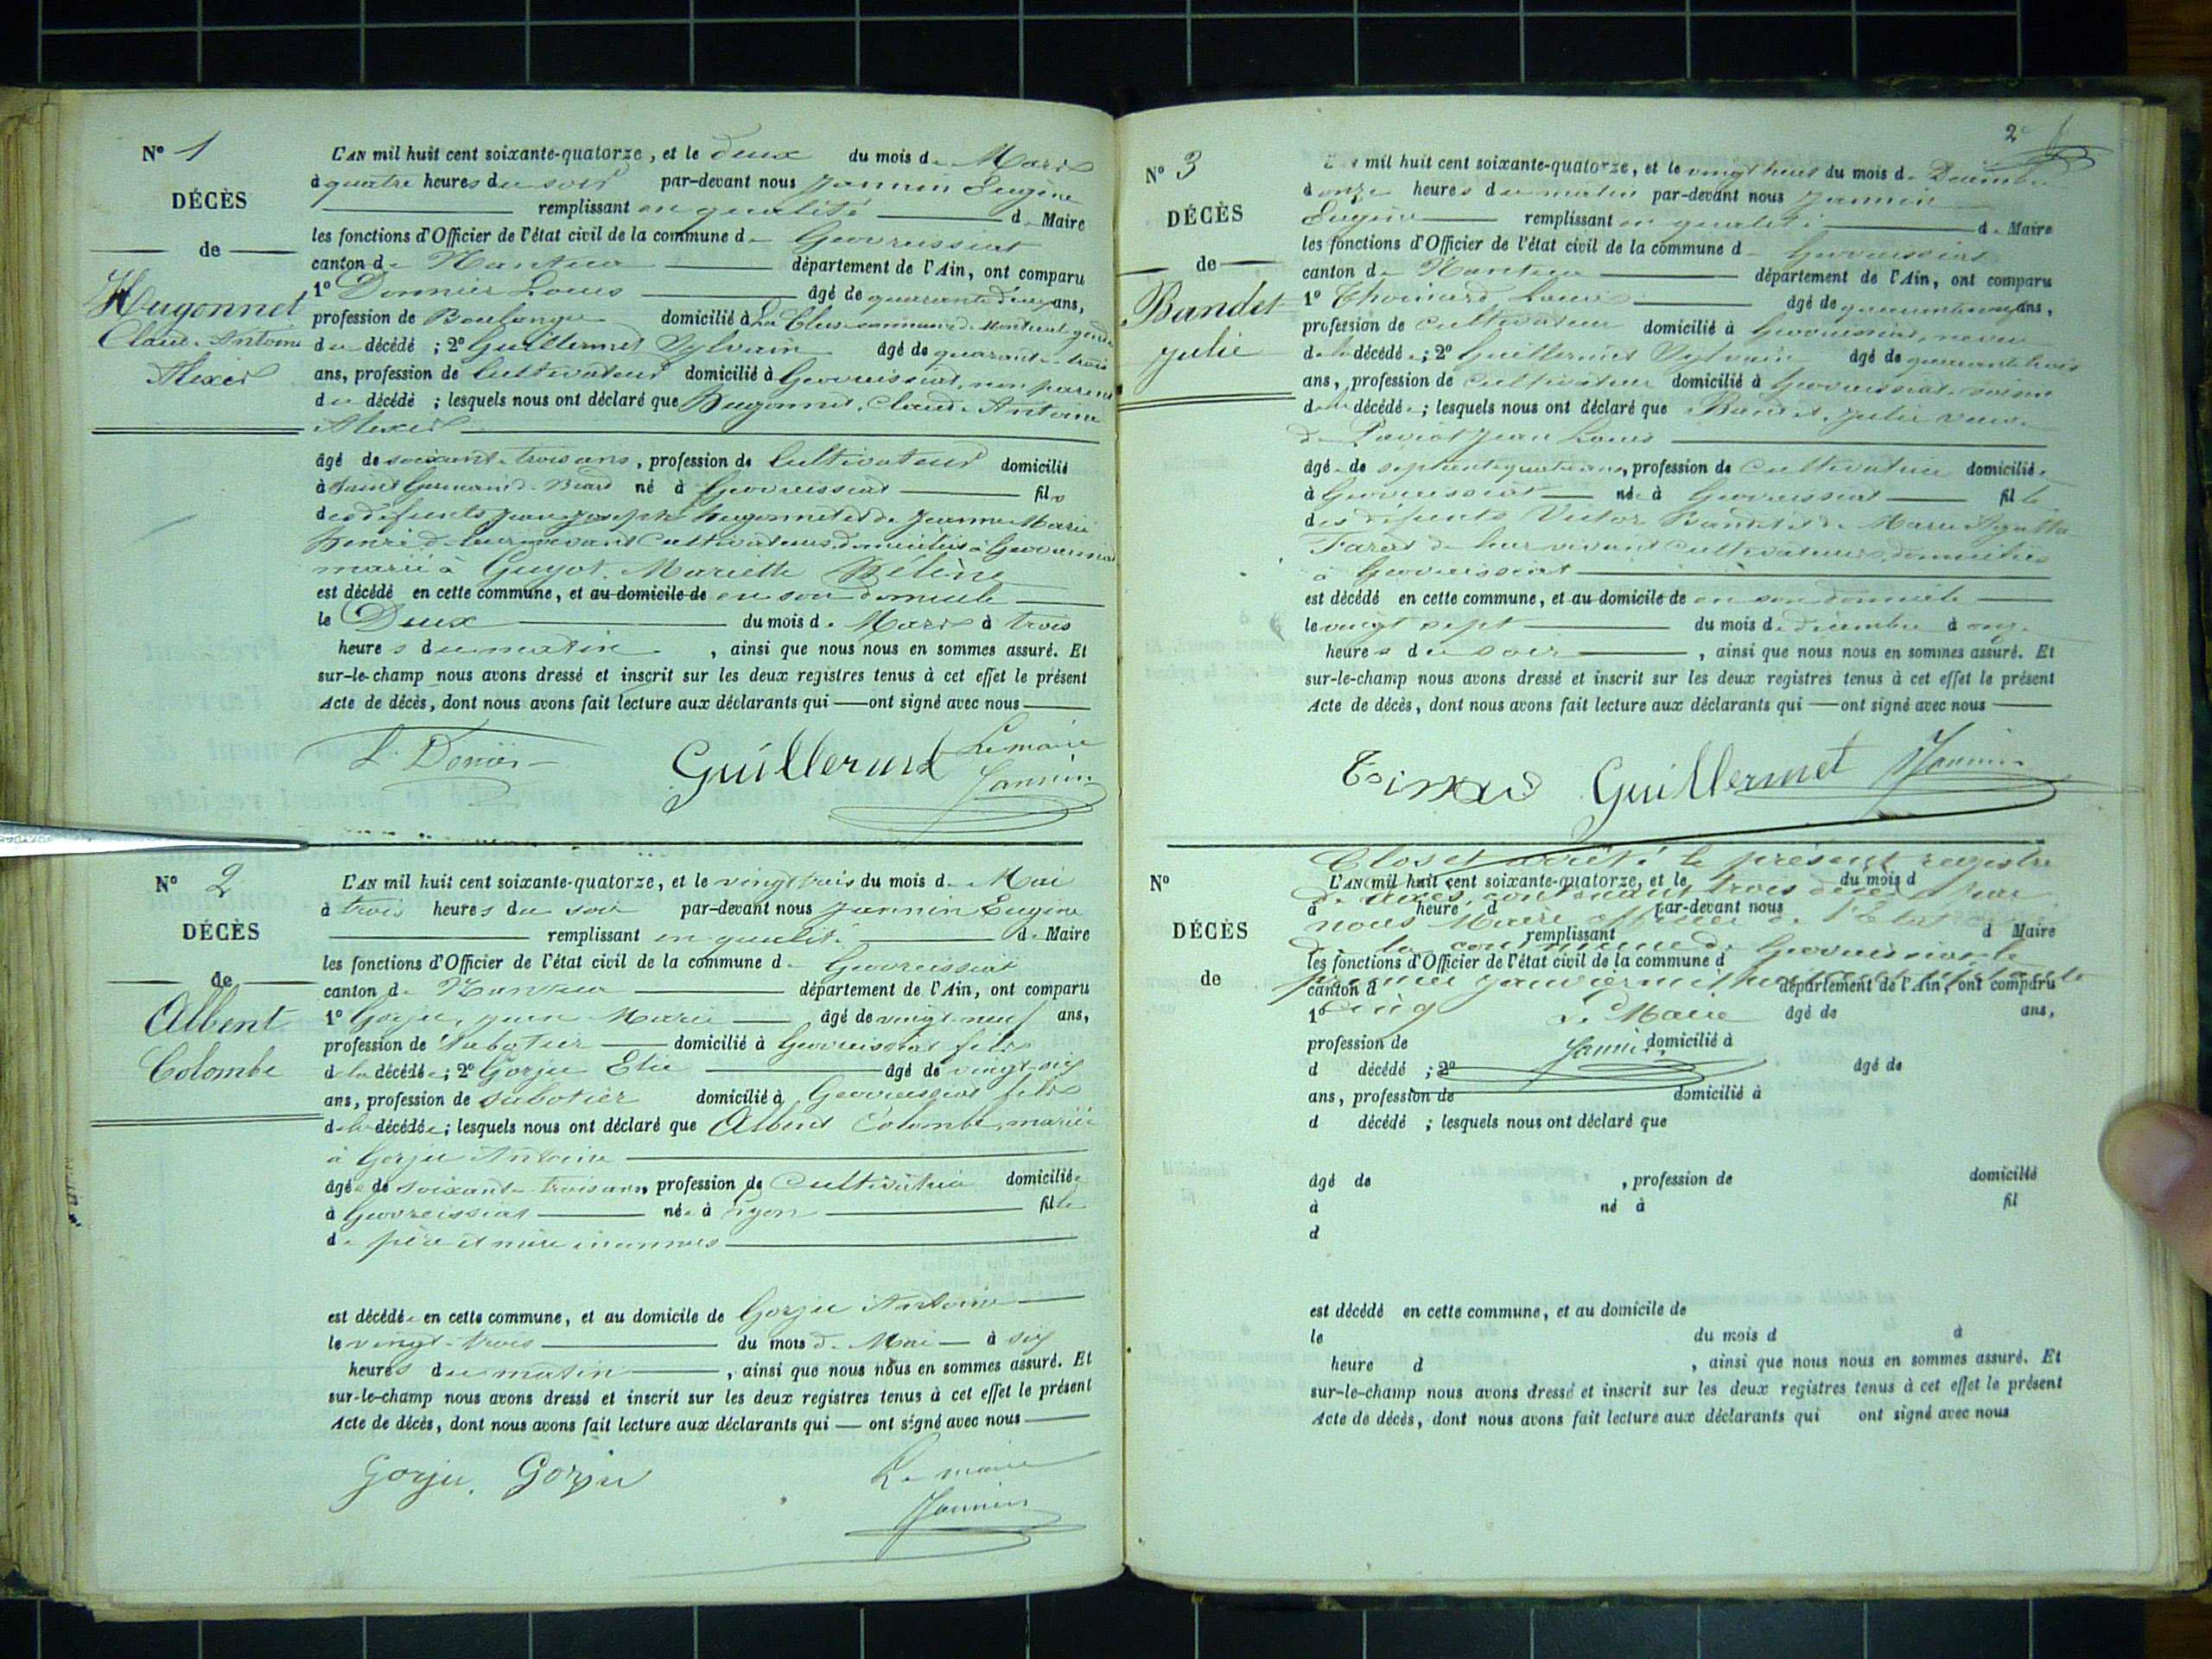 N° 1
DÉCÈS
de
Hugonnet
Claude Antoine
Alexis
L'AN mil huit cent soixante-quatorze, et le deux du mois de Mars
à quatre heures du soir par-devant nous Jannin Eugène
remplissant en qualité de Maire
les fonctions d'Officier de l'état civil de la commune de Geovreissiat
canton de Nantua département de l'Ain, ont comparu
1° Donnier Louis âgé de quarante deux ans,
profession de Boulanger domicilié à La Cluse commune de Montréal gendre
du décédé ; 2° Guillermet Sylvain âgé de quarante trois
ans, profession de Cultivateur domicilié à Geovreissiat, non parent
du décédé ; lesquels nous ont déclaré que Hugonnet, Claude Antoine
Alexis
âgé de soixante trois ans, profession de Cultivateur domicilié
à Saint Germain de Béard né à Geovreissiat fils
des défunts Jean Joseph Hugonnet et de Jeanne Marie
de leur vivant Cultivateurs domiciliés à Geovreissiat
marié à Guyot Mariette Hélène
est décédé en cette commune, et au domicile de en son domicile
le Deux du mois de Mars à trois
heures du matin , ainsi que nous nous en sommes assuré. Et
sur-le-champ nous avons dressé et inscrit sur les deux registres tenus à cet effet le présent
Acte de décès, dont nous avons fait lecture aux déclarants qui — ont signé avec nous
L Donier Guillermet Le maire
Jannin
N° 2
DÉCÈS
de
Albent
Colombe
L'AN mil huit cent soixante-quatorze, et le vingt trois du mois de Mai
à trois heures du soir par-devant nous Jannin Eugène
remplissant en qualité de Maire
les fonctions d'Officier de l'état civil de la commune de Geovreissiat
canton de Nantua département de l'Ain, ont comparu
1° Gorju, Jean Marie âgé de vingt neuf ans,
profession de Sabotier domicilié à Geovreissiat fils
de la décédée ; 2° Gorju Elie âgé de vingt-six
ans, profession de sabotier domicilié à Geovreissiat fils
de la décédée ; lesquels nous ont déclaré que Albent Colombe, mariée
à Gorju Antoine
âgée de soixante trois ans, profession de Cultivatrice domiciliée
à Geovreissiat née à Lyon fille
de père et mère inconnus
est décédée en cette commune, et au domicile de Gorju Antoine
le vingt-trois du mois de Mai à six
heures du matin , ainsi que nous nous en sommes assuré. Et
sur-le-champ nous avons dressé et inscrit sur les deux registres tenus à cet effet le présent
Acte de décès, dont nous avons fait lecture aux déclarants qui — ont signé avec nous
Gorju. Gorju Le maire
Jannin
2e
N° 3
DÉCÈS
de
Bandet
Julie
L'AN mil huit cent soixante-quatorze, et le vingt huit du mois de Décembre
à onze heures du matin par-devant nous Jannin
Eugène remplissant en qualité de Maire
les fonctions d'Officier de l'état civil de la commune d Geovreissiat
canton de Nantua département de l'Ain, ont comparu
1° Louis âgé de ans,
profession de cultivateur domicilié à Geovreissiat, neveu
de la décédée ; 2° Guillermet Sylvain âgé de quarante trois
ans, profession de cultivateur domicilié à Geovreissiat voisin
de la décédée ; lesquels nous ont déclaré que Bandet, Julie veuve
de Paviot Jean Louis
âgée de septante quatre ans, profession de Cultivatrice domiciliée
à Geovreissiat née à Geovreissiat fille
des défunts Victor Bandet et de Marie Agatha
de leur vivant cultivateurs, domiciliés
à Geovreissiat
est décédé en cette commune, et au domicile de en son domicile
le vingt sept du mois de décembre à onze
heures du soir , ainsi que nous nous en sommes assuré. Et
sur-le-champ nous avons dressé et inscrit sur les deux registres tenus à cet effet le présent
Acte de décès, dont nous avons fait lecture aux déclarants qui — ont signé avec nous
Guillermet Jannin
Clos et arrêté le présent registre
N° L'AN mil huit cent soixante-quatorze, et le du mois d
de décès, contenant trois décès, par
à heure d par-devant nous
nous Maire officier de l'Etat
remplissant d Maire
DÉCÈS
de la commune de Geovreissiat le
les fonctions d'Officier de l'état civil de la commune d
de
premier janvier mil huit cent septante
canton d département de l'Ain, ont comparu
cinq Le Maire
1° âgé de ans,
profession de domicilié à
Jannin
d décédé ; 2° âgé de
ans, profession de domicilié à
d décédé ; lesquels nous ont déclaré que
âgé de , profession de domicilié
à né à fil
d
est décédé en cette commune, et au domicile de
le du mois d à
heure d , ainsi que nous nous en sommes assuré. Et
sur-le-champ nous avons dressé et inscrit sur les deux registres tenus à cet effet le présent
Acte de décès, dont nous avons fait lecture aux déclarants qui ont signé avec nous